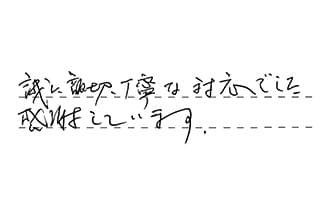 誠に親切、丁寧な対応でした
感謝しています。